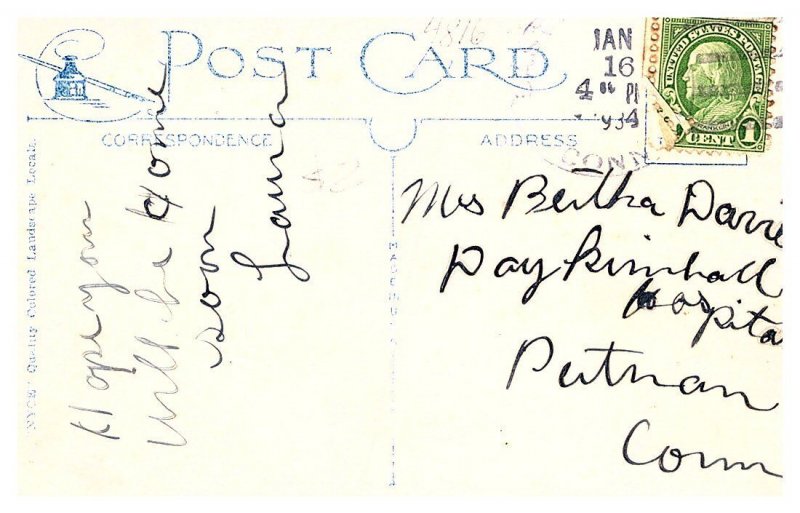 4816
POST CARD
JAN
16
4 PM
1934
CONN
UNITED STATES POSTAGE
FRANKLIN
1 CENT 1
CORRESPONDENCE
ADDRESS
Hope you
will be Home
soon
Laura
Mrs Bertha Davie
Day Kimball
Hospital
Putnam
Conn
"NYCE" Quality Colored Landscape Locals.